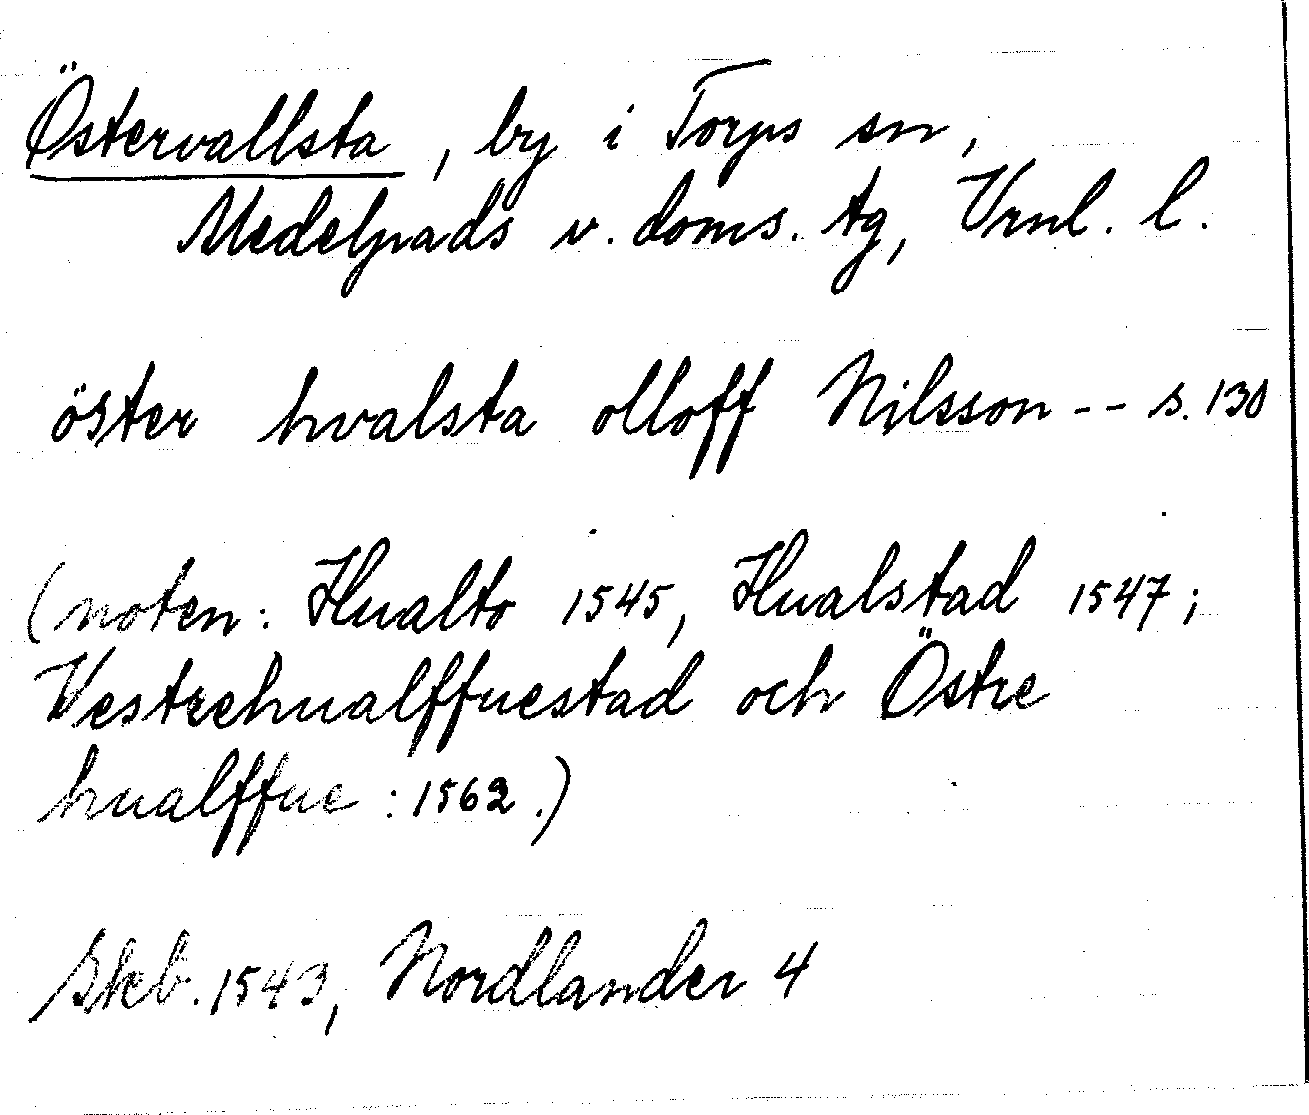 Östervallsta, by i Torps sn,
Medelpads v. doms. tg, Vrnl. l.
öster hvalsta olloff Nilsson -- s. 130
(noten: Hualto 1545, Hualstad 1547;
Vestrehualffuestad och Östre
hualffue : 1562.)
Skb. 1543, Nordlander 4